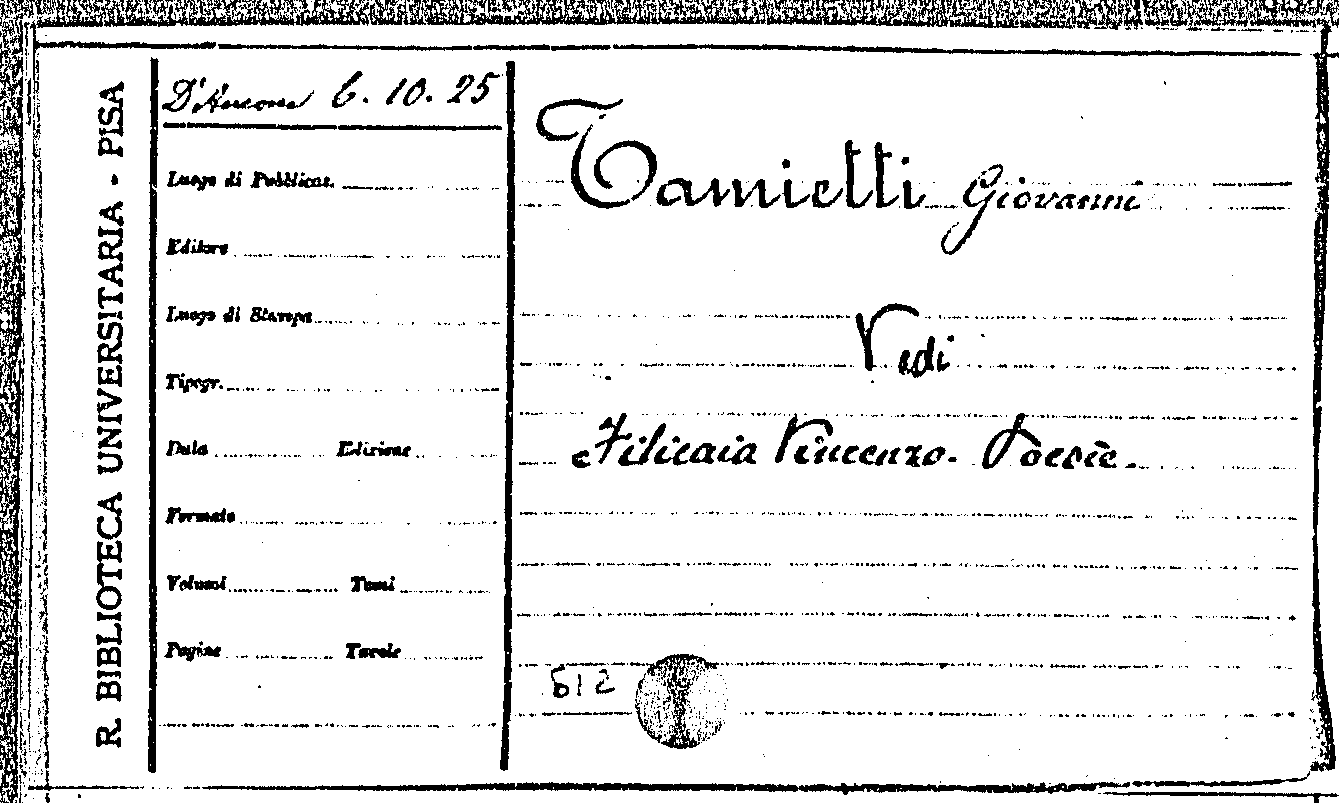 R. BIBLIOTECA UNIVERSITARIA - PISA
D'Ancona 6. 10. 25
Luogo di Pubblicaz.
Editore
Luogo di Stampa
Tipogr.
Data Edizione
Formato
Volumi Tomi
Pagine Tavole
Tamietti Giovanni
Vedi
Filicaia Vincenzo. Poesie.
512